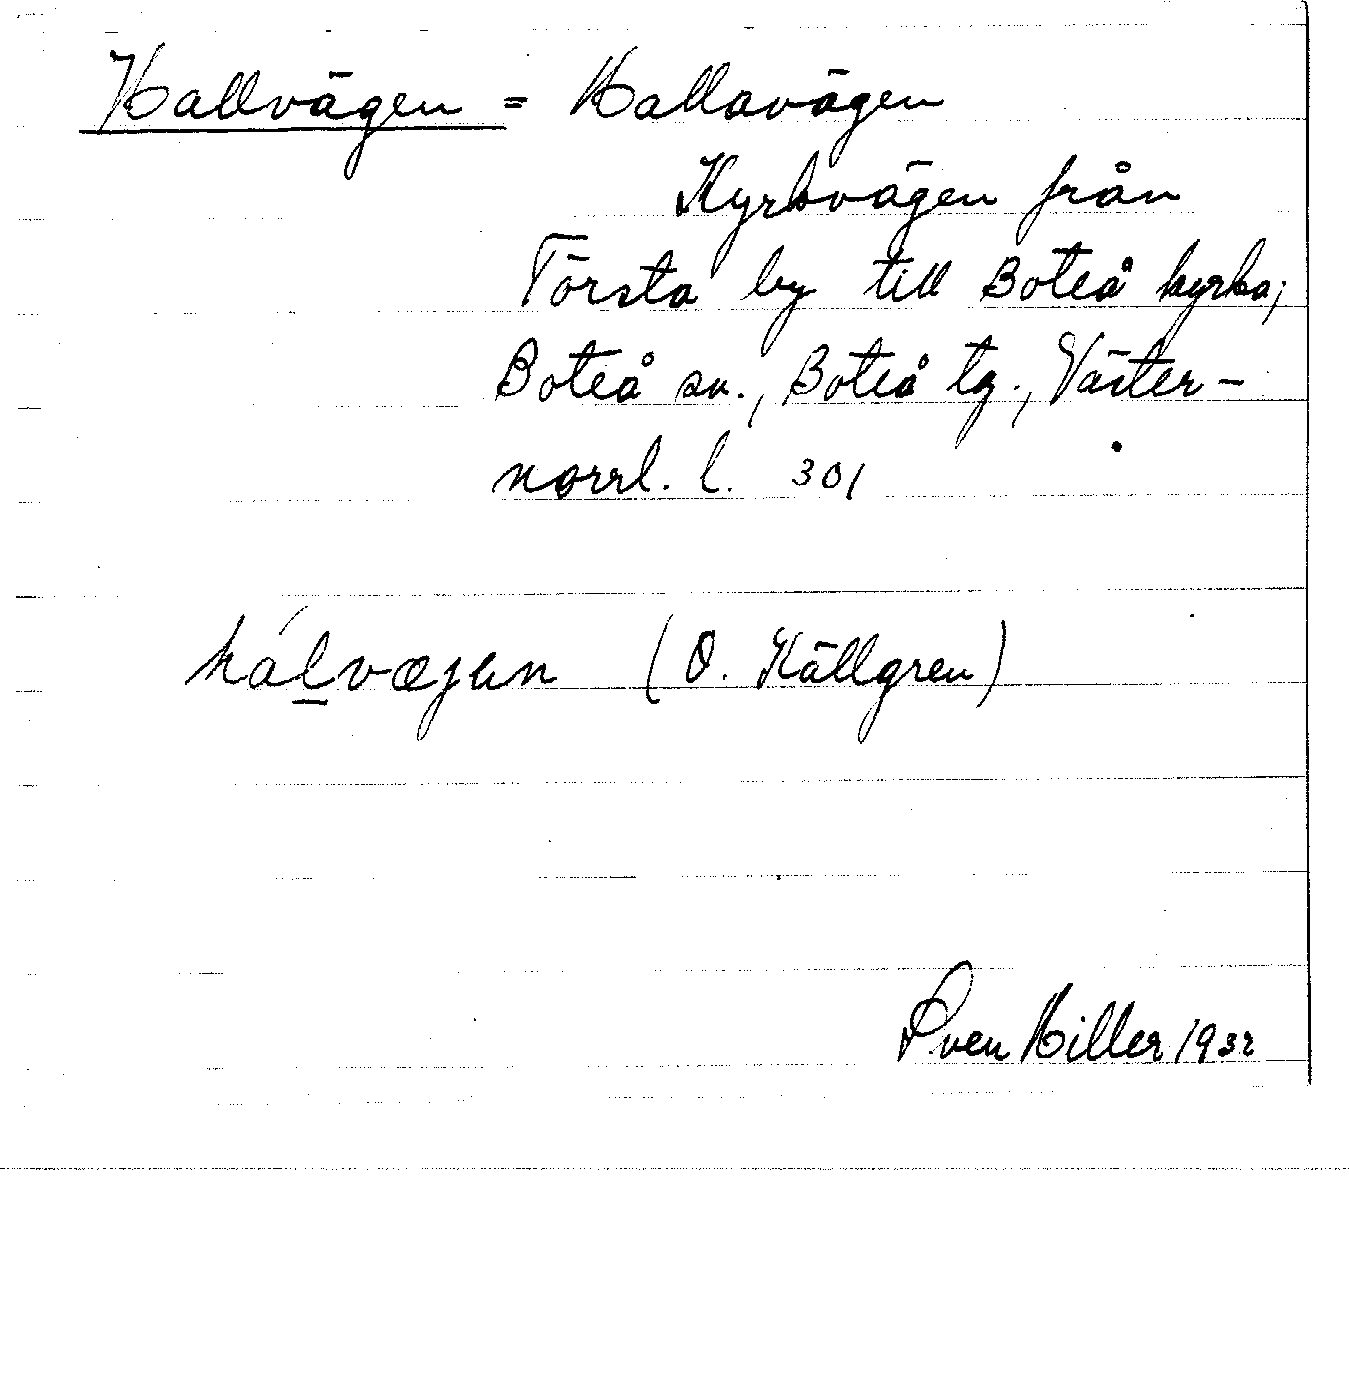 Hallvägen = Hallavägen
Kyrkvägen från
Törsta by till Boteå kyrka;
Boteå sn., Boteå tg., Väster-
norrl. l. 301
hálvæjen (O. Källgren)
Sven Hiller 1932